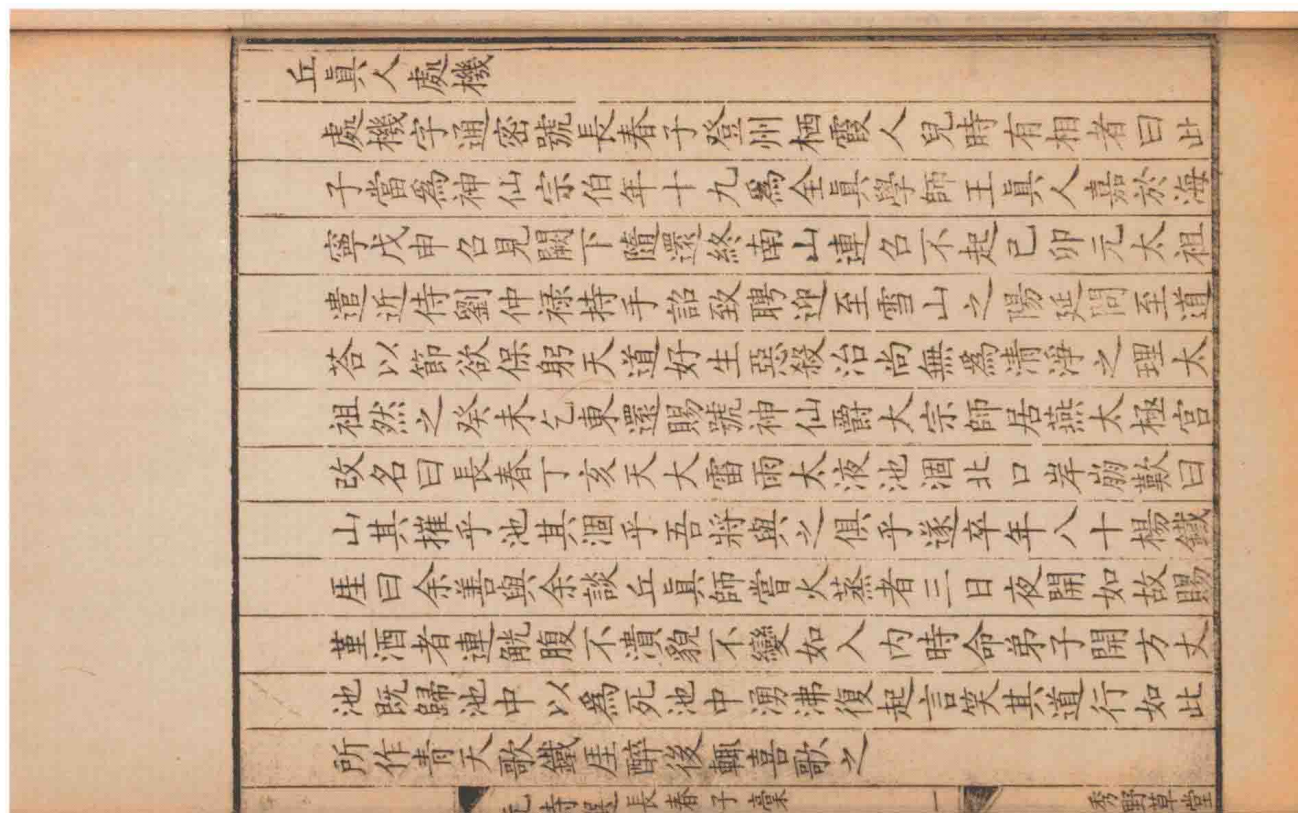 丘眞人處機
處機字通密號長春子登州栖霞人兒時有相者曰此
子當爲神仙宗伯年十九爲全眞學師王眞人嘉於海
寧戊申召見闕下隨還終南山連召不起己卯元太祖
遣近侍劉仲祿持手詔致聘迎至雪山之陽延問至道
荅以節欲保躬天道好生惡殺治尚無爲清淨之理太
祖然之癸未乞東還賜號神仙爵大宗師居燕太極宮
改名曰長春丁亥天大雷雨太液池涸北口岸崩歎曰
山其摧乎池其涸乎吾將與之俱乎遂卒年八十楊鐵
厓曰余善與余談丘眞師嘗火蒸者三日夜開如故賜
堇酒者連觥腹不潰貌不變如入内時命弟子開方丈
池既歸池中以爲死池中湧沸復起言笑其道行如此
所作青天歌鐵厓醉後輒喜歌之
詩選長春子稾 一 秀野草堂